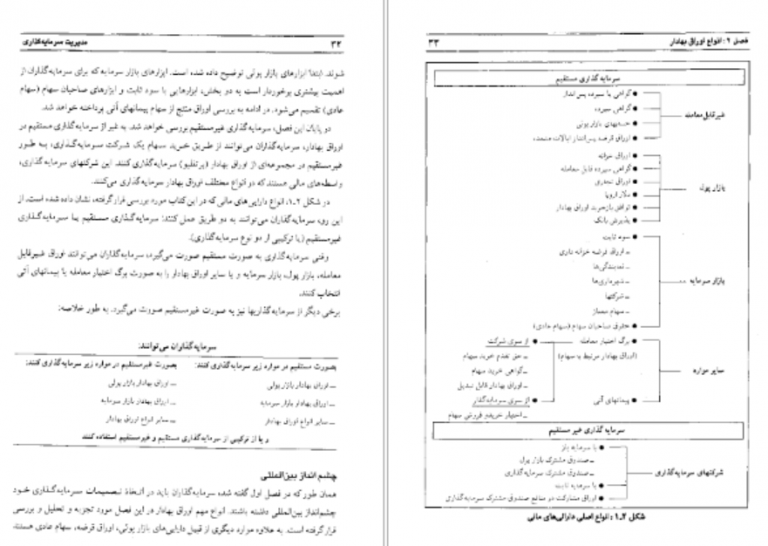 ۳۲ مدیریت سرمایه‌گذاری
شوند. ابتدا ابزارهای بازار پولی توضیح داده شده است. ابزارهای بازار سرمایه که برای سرمایه‌گذاران از
اهمیت بیشتری برخوردار است به دو بخش، ابزارهایی با سود ثابت و ابزارهای صاحبان سهام (سهام
عادی) تقسیم می‌شود. در ادامه به بررسی اوراق منتج از سهام پیمانهای آتی پرداخته خواهد شد.
در پایان این فصل، سرمایه‌گذاری غیرمستقیم بررسی خواهد شد. به غیر از سرمایه‌گذاری مستقیم در
اوراق بهادار، سرمایه‌گذاران می‌توانند از طریق خرید سهام یک شرکت سرمایه‌گذاری، به طور
غیرمستقیم در مجموعه‌ای از اوراق بهادار (پرتفلیو) سرمایه‌گذاری کنند. این شرکتهای سرمایه‌گذاری،
واسطه‌های مالی هستند که در انواع مختلف اوراق بهادار سرمایه‌گذاری می‌کنند.
در شکل ۲ـ۱، انواع دارایی‌های مالی که در این کتاب مورد بررسی قرار گرفته، نشان داده شده است. از
این رو، سرمایه‌گذاران می‌توانند به دو طریق عمل کنند: سرمایه‌گذاری مستقیم یا سرمایه‌گذاری
غیرمستقیم (یا ترکیبی از دو نوع سرمایه‌گذاری).
وقتی سرمایه‌گذاری به صورت مستقیم صورت می‌گیرد، سرمایه‌گذاران می‌توانند اوراق غیرقابل
معامله، بازار پول، بازار سرمایه و یا سایر اوراق بهادار را به صورت برگ اختیار معامله یا پیمانهای آتی
انتخاب کنند.
برخی دیگر از سرمایه‌گذاریها نیز به صورت غیرمستقیم صورت می‌گیرد. به طور خلاصه:
سرمایه‌گذاران می‌توانند:
بصورت مستقیم در موارد زیر سرمایه‌گذاری کنند: بصورت غیرمستقیم در موارد زیر سرمایه‌گذاری کنند:
ـ اوراق بهادار بازار پولی ـ اوراق بهادار بازار پولی
ـ اوراق بهادار بازار سرمایه ـ اوراق بهادار بازار سرمایه
ـ سایر انواع اوراق بهادار ـ سایر انواع اوراق بهادار
و یا از ترکیبی از سرمایه‌گذاری مستقیم و غیرمستقیم استفاده کنند
چشم انداز بین‌المللی
همان طور که در فصل اول گفته شده سرمایه‌گذاران باید در اتخاذ تصمیمات سرمایه‌گذاری خود
چشم‌انداز بین‌المللی داشته باشند. انواع مهم اوراق بهادار در این فصل مورد تجزیه و تحلیل و بررسی
قرار گرفته است. به علاوه موارد دیگری از قبیل دارایی‌های بازار پولی، اوراق قرضه، سهام عادی هستند
فصل ۲: انواع اوراق بهادار ۳۳
سرمایه گذاری مستقیم
غیرقابل معامله
● گواهی یا سپرده پس‌انداز
● گواهی سپرده
● حسابهای بازار پولی
● اوراق قرضه پس‌انداز ایالات متحده
بازار پول
● اوراق خزانه
● گواهی سپرده قابل معامله
● اوراق تجاری
● دلار اروپا
● توافق بازخرید اوراق بهادار
● پذیرش بانک
بازار سرمایه
● سود ثابت
ـ اوراق قرضه خزانه داری
ـ نمایندگی‌ها
ـ شهرداری‌ها
ـ شرکتها
ـ سهام ممتاز
● حقوق صاحبان سهام (سهام عادی)
سایر موارد
● برگ اختیار معامله ● از سوی شرکت
(اوراق بهادار مرتبط به سهام) ـ حق تقدم خرید سهام
ـ گواهی خرید سهام
ـ اوراق بهادار قابل تبدیل
● پیمانهای آتی ● از سوی سرمایه‌گذار
ـ اختیار خرید و فروش سهام
سرمایه گذاری غیر مستقیم
شرکتهای سرمایه‌گذاری
● با سرمایه باز
ـ صندوق مشترک بازار پول
ـ صندوق مشترک سرمایه‌گذاری
● با سرمایه ثابت
● اوراق مشارکت در منافع صندوق مشترک سرمایه‌گذاری
شکل ۲ـ۱: انواع اصلی دارائی‌های مالی